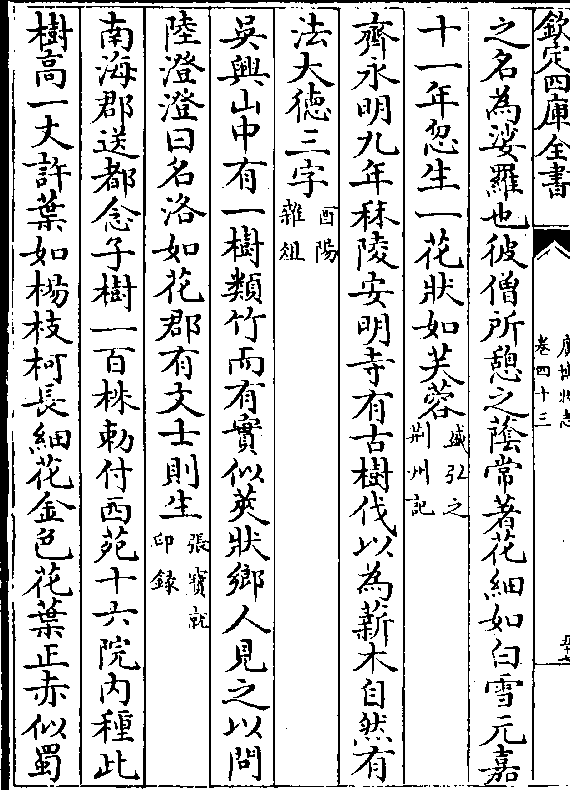 欽定四庫全書
廣博物志
卷四十三
之名為娑羅也彼僧所憩之蔭常著花細如白雪元嘉
十一年忽生一花狀如芙蓉盛弘之荆州記
齊永明九年秣陵安明寺有古樹伐以為薪木自然有
法大德三字酉陽雜俎
吳興山中有一樹類竹而有實似莢狀鄉人見之以問
陸澄澄曰名洛如花郡有文士則生張寳就印錄
南海郡送都念子樹一百株勅付西苑十六院内種此
樹高一丈許葉如楊枝柯長細花金色花葉正赤似蜀